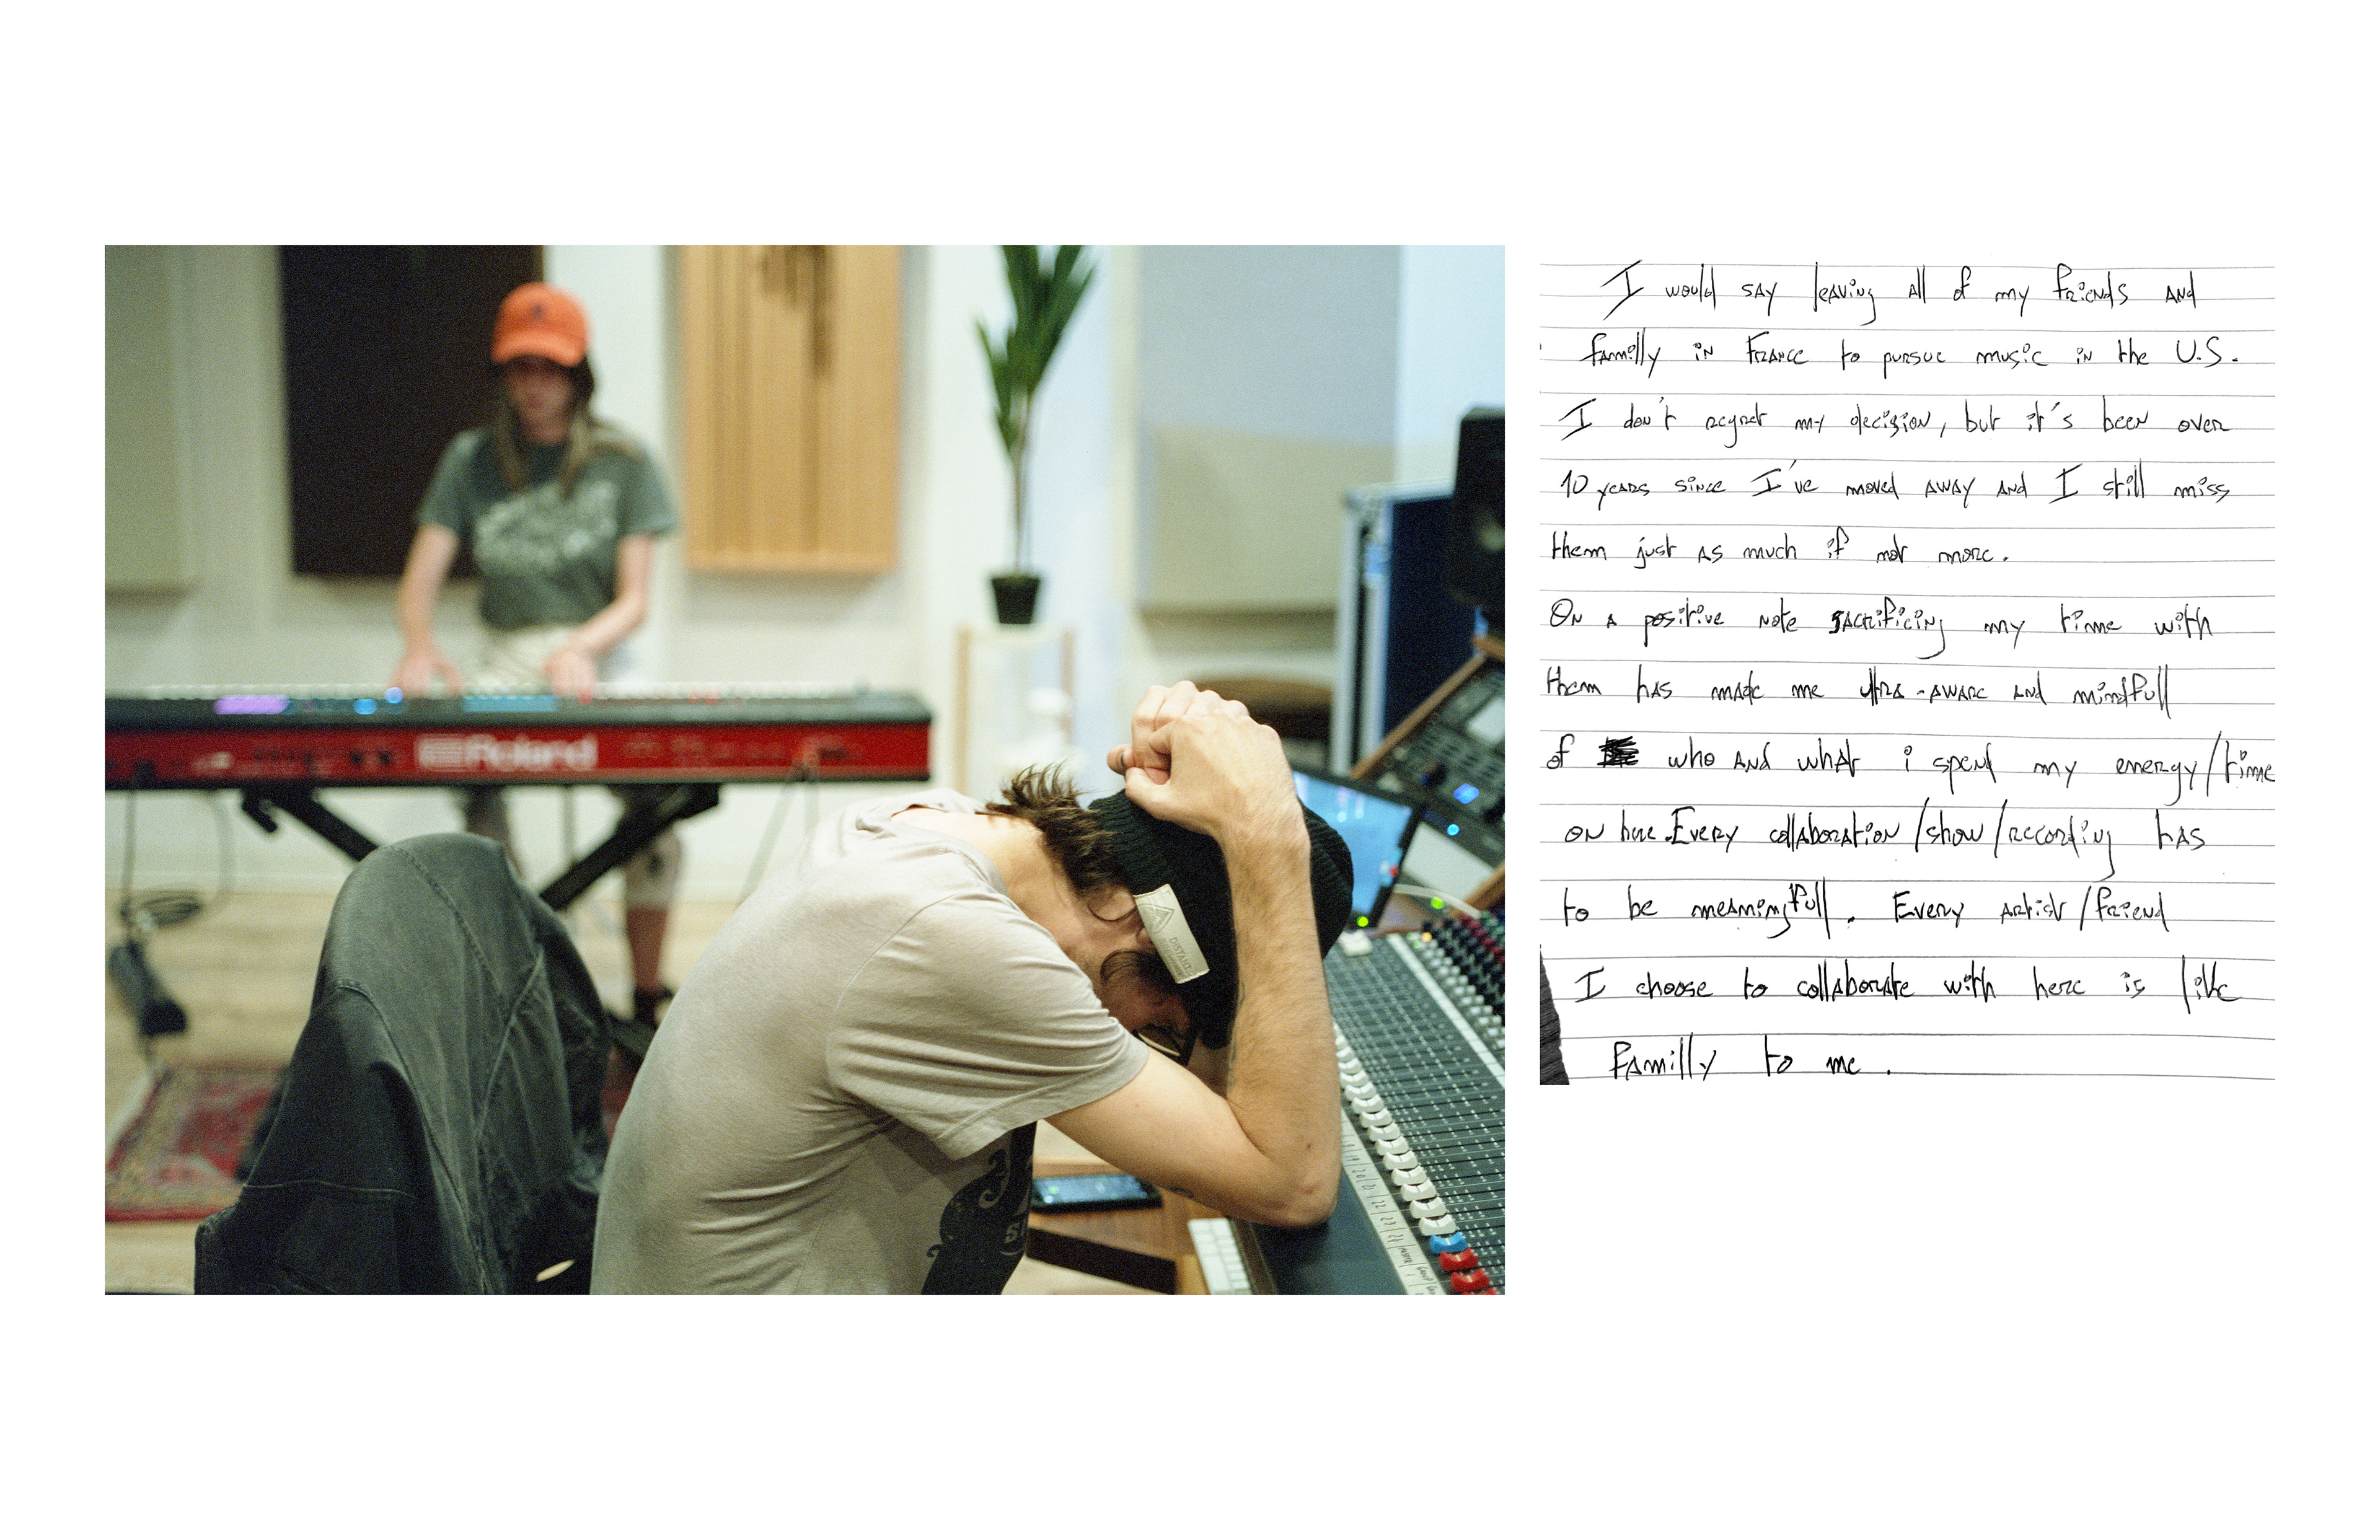 Roland
DISTASO
I would say leaving all of my friends and
familly in France to pursue music in the U.S.
I don't regret my decision, but it's been over
10 years since I've moved away and I still miss
them just as much if not more.
On a positive note sacrificing my time with
them has made me ultra-aware and mindfull
of who and what i spend my energy/time
on here. Every collaboration/show/recording has
to be meaningfull. Every artist/friend
I choose to collaborate with here is like
familly to me.